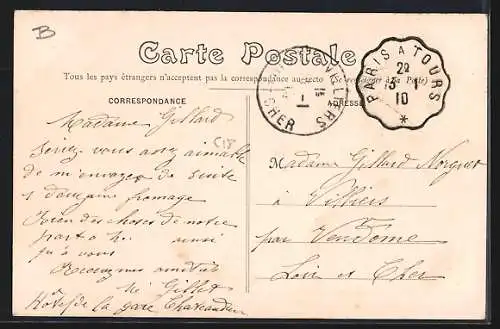 B
Carte Postale
Tous les pays étrangers n'acceptent pas la correspondance au recto (Se renseigner à la Poste)
CORRESPONDANCE
ADRESSE
PARIS A TOURS
2º
3 - 1
10
*
VILLIERS
CHER
C18
Madame Gillard
Seriez vous assez aimable
de m'envoyer de suite
1 douzaine fromage
Bien des choses de notre
part à
ainsi
qu'à vous
Recevez mes amitiés
Gillet
Hôtel de la gare Chateaudun
Madame Gillard
à Villiers
par Vendome
Loir et Cher